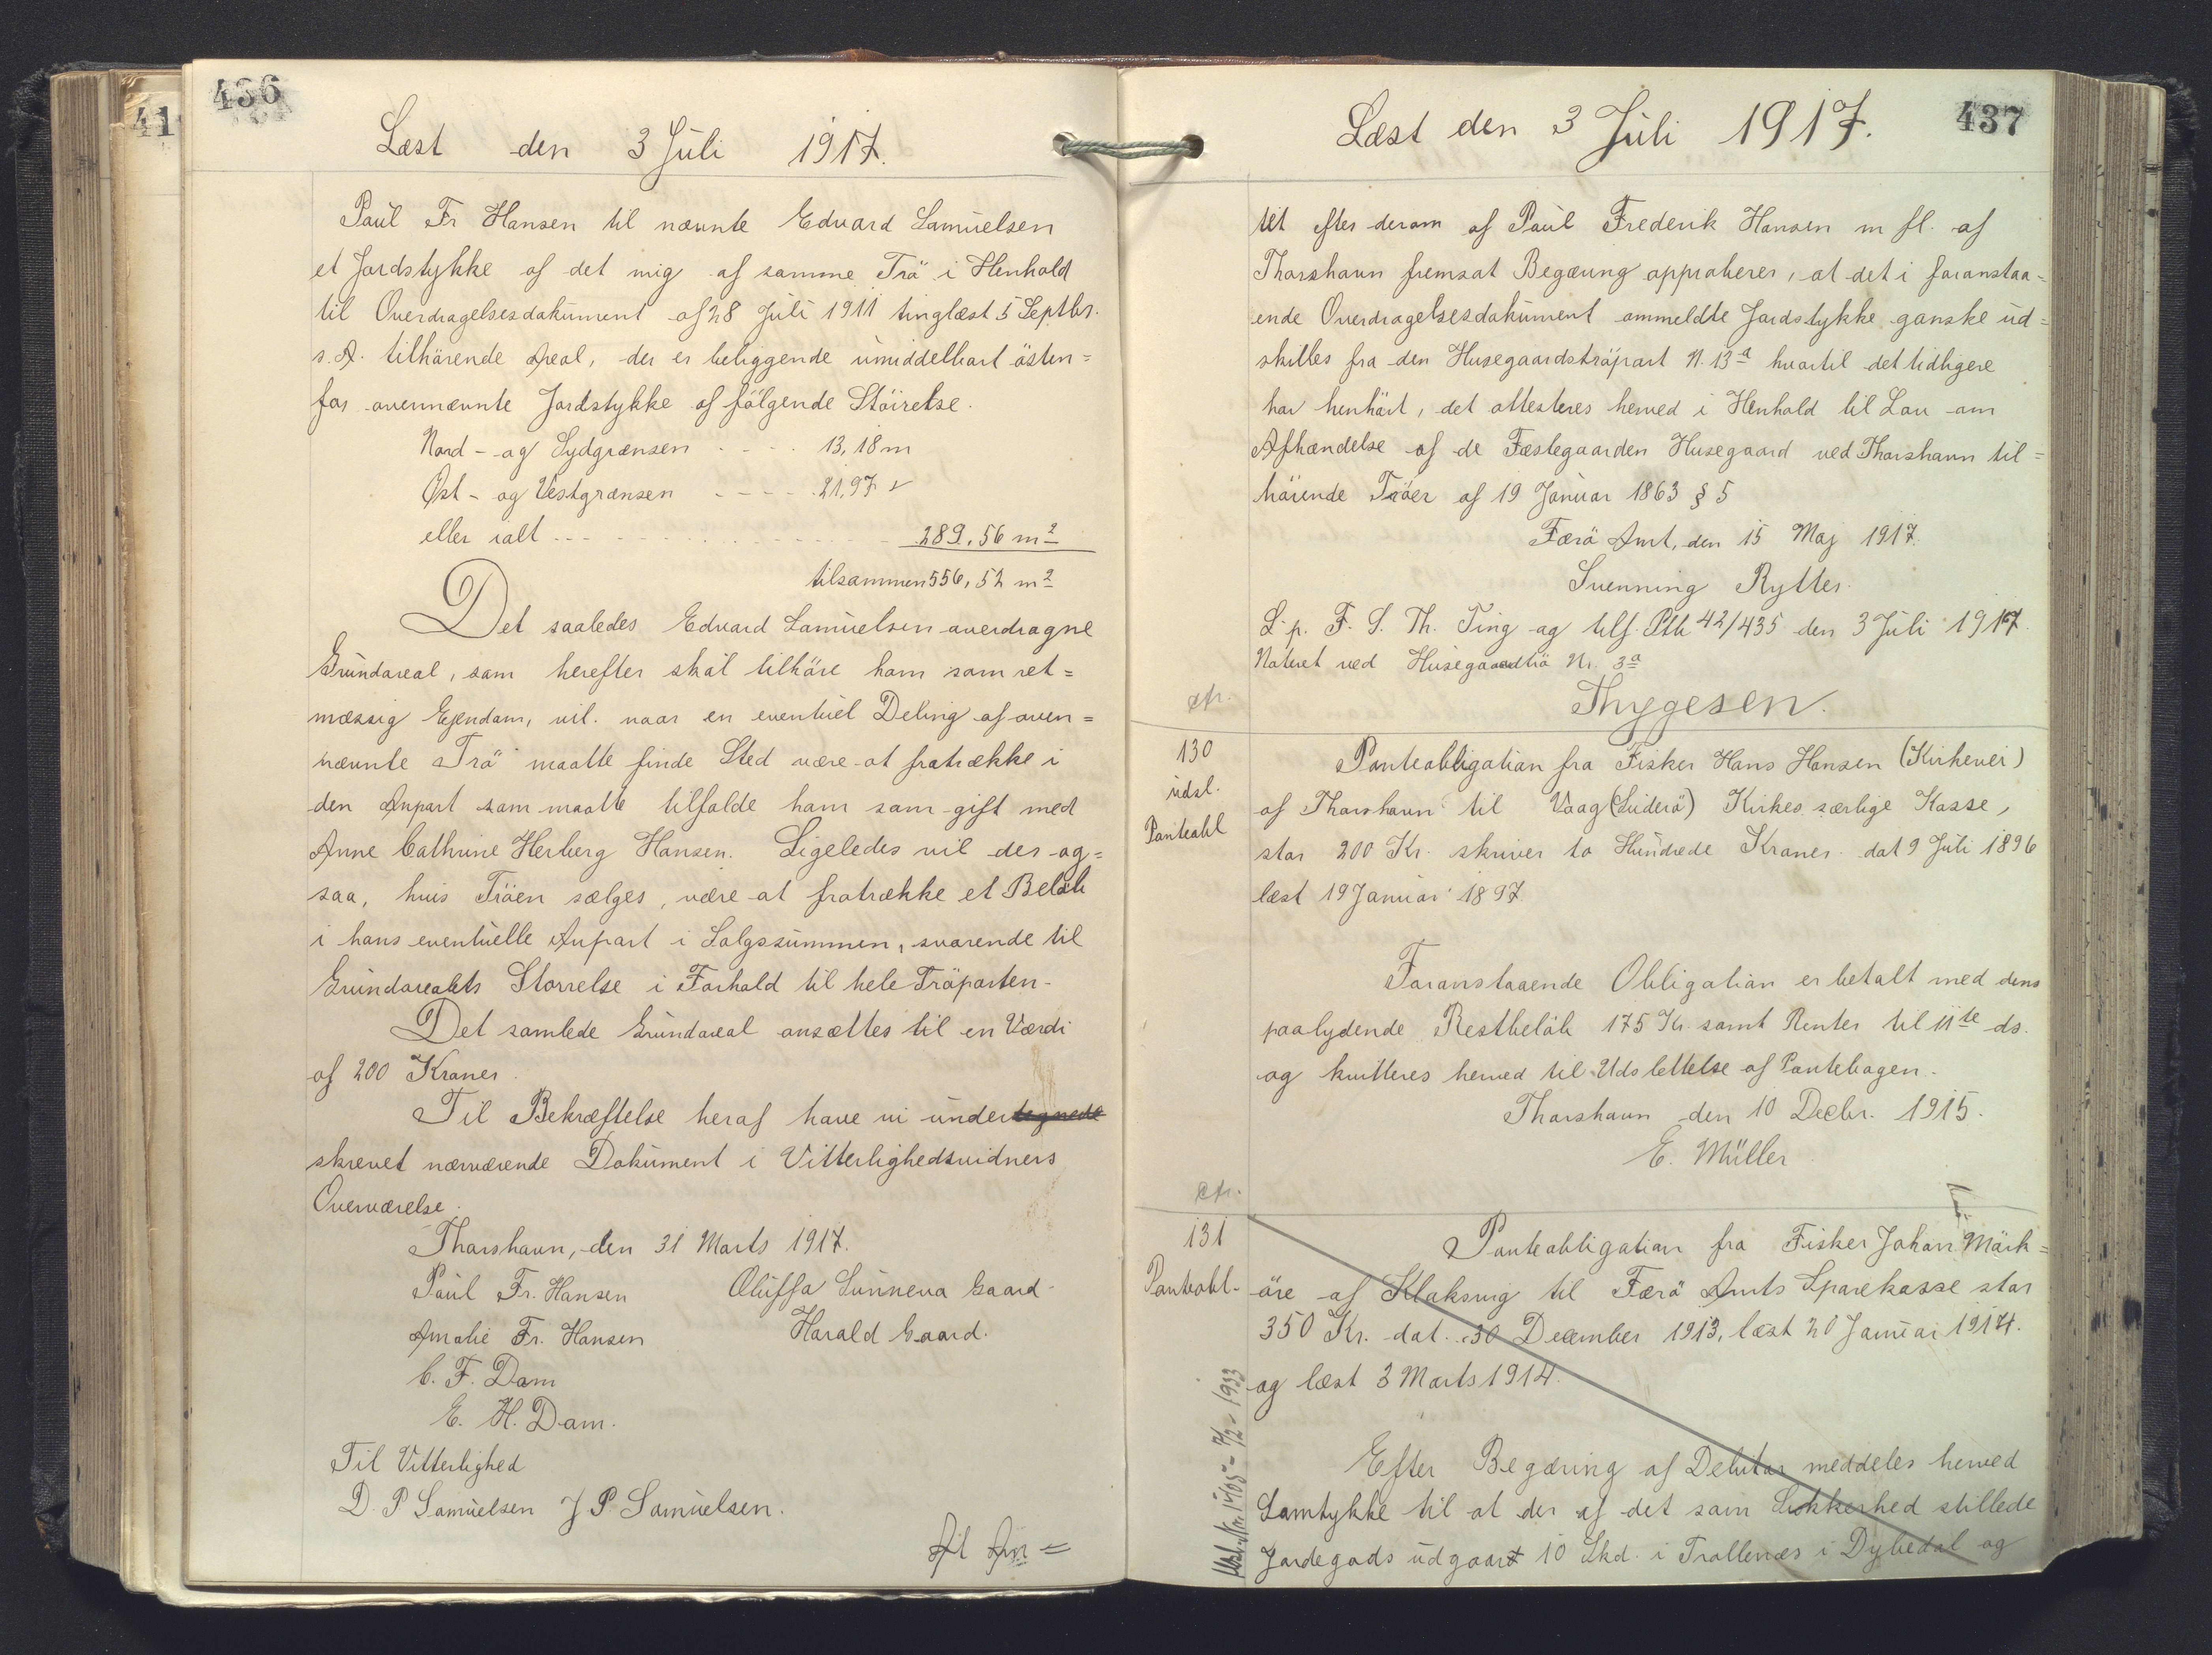 436
Læst den 3 Juli 1917.
Paul Fr Hansen til nævnte Edvard Samuelsen
et Jordstykke af det mig af samme Trö i Henhold
til Overdragelsesdokument af 28 Juli 1911 tinglæst 5 Septbr.
s. A. tilhörende Areal, der er beliggende umiddelbart östen=
for ovennævnte Jordstykke af fölgende Störrelse.
Nord- og Sydgrænsen - - - - 13,18 m
Øst- og Vestgrænsen - - - - 21,97 "
eller ialt - - - 289,56 m²
tilsammen 556,52 m²
Det saaledes Edvard Samuelsen overdragne
Grundareal, som herefter skal tilhöre ham som ret=
mæssig Ejendom, vil. naar en eventuel Deling af oven=
nævnte Trö maatte finde Sted være at fratrække i
den Anpart som maatte tilfalde ham som gift med
Anne Cathrine Herberg Hansen. Ligeledes vil der og=
saa, hvis Tröen sælges, være at fratrække et Belöb
i hans eventuelle Anpart i Salgssummen, svarende til
Grundarealets Storrelse i Forhold til hele Tröparten-
Det samlede Grundareal ansættes til en Værdi
af 200 Kroner.
Til Bekræftelse heraf have vi undertegnede
skrevet nærværende Dokument i Vitterlighedsvidners
Overværelse.
Thorshavn, den 31 Marts 1917.
Paul Fr. Hansen Oluffa Sunneva Gaard.
Amalie Fr. Hansen Harald Gaard.
C. F. Dam
E. H. Dam.
Til Vitterlighed
D. P Samuelsen J P. Samuelsen.
At Am=
437
Læst den 3 Juli 1917.
tet efter derom af Paul Frederik Hansen m fl. af
Thorshavn fremsat Begæring approberer, at det i foranstaa=
ende Overdragelsesdokument ommeldte Jordstykke ganske ud=
skilles fra den Husegaardströpart N. 13a hvortil det tidligere
har henhört, det attesteres herved i Henhold til Lov om
Afhændelse af de Fæstegaarden Husegaard ved Thorshavn til=
hörende Tröer af 19 Januar 1863 § 5
Færö Amt, den 15 Maj 1917.
Svenning Rytter.
L. p. F. S. Th. Ting og tilf. Ptb 42/435 den 3 Juli 1917.
Noteret ved Husegaardtrö Nr. 3a
Thygesen.
130
udsl.
Panteobl
Panteobligation fra Fisker Hans Hansen (Kirkevei)
af Thorshavn til Vaag (Suderö) Kirkes særlige Kasse,
stor 200 Kr. skriver to Hundrede Kroner. dat 9 Juli 1896
læst 19 Januar 1897.
Foranstaaende Obligation er betalt med dens
paalydende Restbelöb 175 Kr. samt Renter til 11te ds.
og kvitteres herved til Udslettelse af Pantebogen.
Thorshavn den 10 Decbr. 1915.
E. Müller
131
Panteobl-
Panteobligation fra Fisker Johan Mörk=
öre af Klaksvig til Færö Amts Sparekasse stor
350 Kr. dat. 30 December 1913, læst 20 Januar 1914.
og læst 3 Marts 1914.
Efter Begæring af Debitor meddeles herved
Samtykke til at der af det som Sikkerhed stillede
Jordegods udgaar 10 Skd. i Trollenæs i Dybedal og